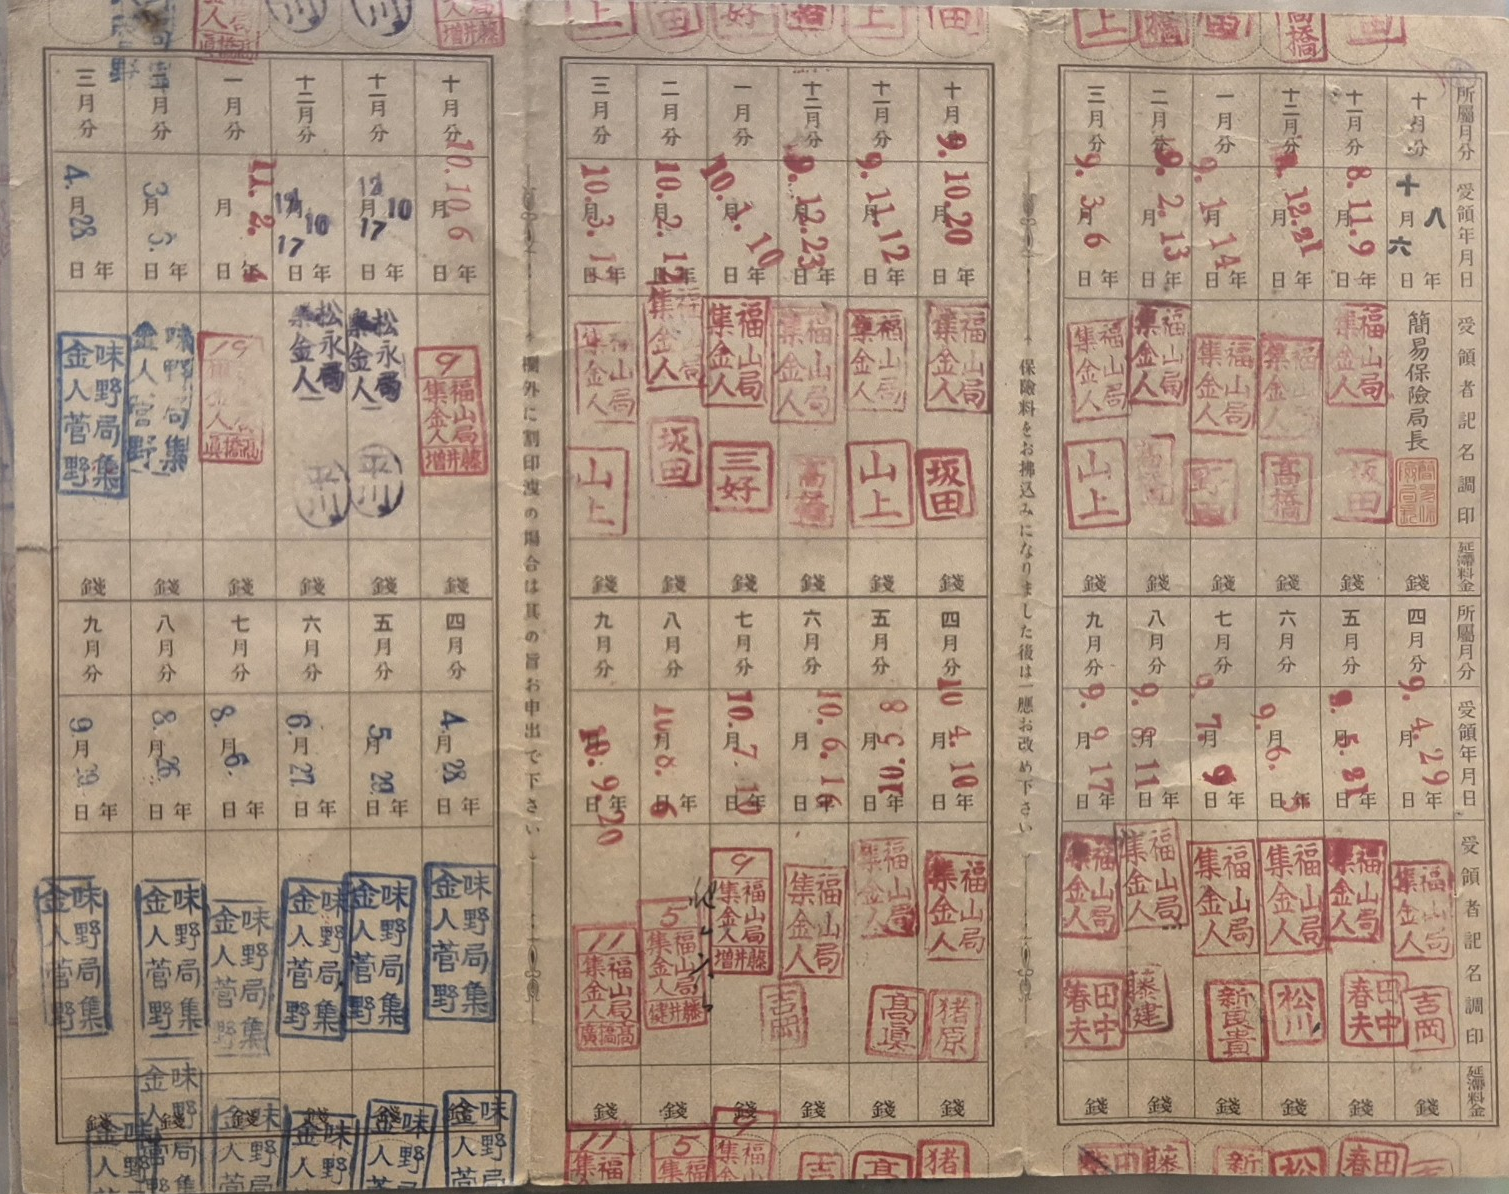 所屬月分
十月分
十一月分
十二月分
一月分
二月分
三月分
受領年月日
八年十月六日
8.11.9
9.1.14
9.2.13
9.3.6
年月日
受領者記名調印
簡易保險局長
福山局集金人
坂田
福山局集金人
高橋
福山局集金人
福山局集金人
福山局集金人
山上
延滯料金
錢
錢
錢
錢
錢
錢
所屬月分
四月分
五月分
六月分
七月分
八月分
九月分
受領年月日
9.4.29
9.6.5
9.7.9
9.8.11
9.9.17
年月日
受領者記名調印
福山局集金人
吉岡
福山局集金人
田中春夫
福山局集金人
松川
福山局集金人
新良貴
福山局集金人
藤建
福山局集金人
田中春夫
延滯料金
錢
錢
錢
錢
錢
錢
保險料をお拂込みになりました後は一應お改め下さい
十月分
十一月分
十二月分
一月分
二月分
三月分
9.10.20
9.11.12
9.12.23
10.1.10
10.2.12
年月日
福山局集金人
坂田
福山局集金人
山上
福山局集金人
高橋
福山局集金人
三好
福山局集金人
坂田
福山局集金人
山上
錢
錢
錢
錢
錢
錢
四月分
五月分
六月分
七月分
八月分
九月分
10.4.10
10.6.16
10.7.10
10.8.6
10.9.20
年月日
福山局集金人
猪原
福山局集金人
福山局集金人
吉岡
9
福山局集金人
藤井增
5
福山局集金人
藤井健
11
福山局集金人
高橋廣
錢
錢
錢
錢
錢
錢
欄外に割印洩の場合は其の旨お申出で下さい
十月分
十一月分
十二月分
一月分
二月分
三月分
10.10.6
10.12.17
11.2.4
3.6.
4.28
年月日
9
福山局集金人
藤井增
松永局集金人
平川
松永局集金人
平川
19
味野局集金人菅野
味野局集金人菅野
錢
錢
錢
錢
錢
錢
四月分
五月分
六月分
七月分
八月分
九月分
4.28
5.29
6.27
8.6.
8.26
9.29
年月日
味野局集金人菅野
味野局集金人菅野
味野局集金人菅野
味野局集金人菅野
味野局集金人菅野
味野局集金人菅野
錢
錢
錢
錢
錢
錢